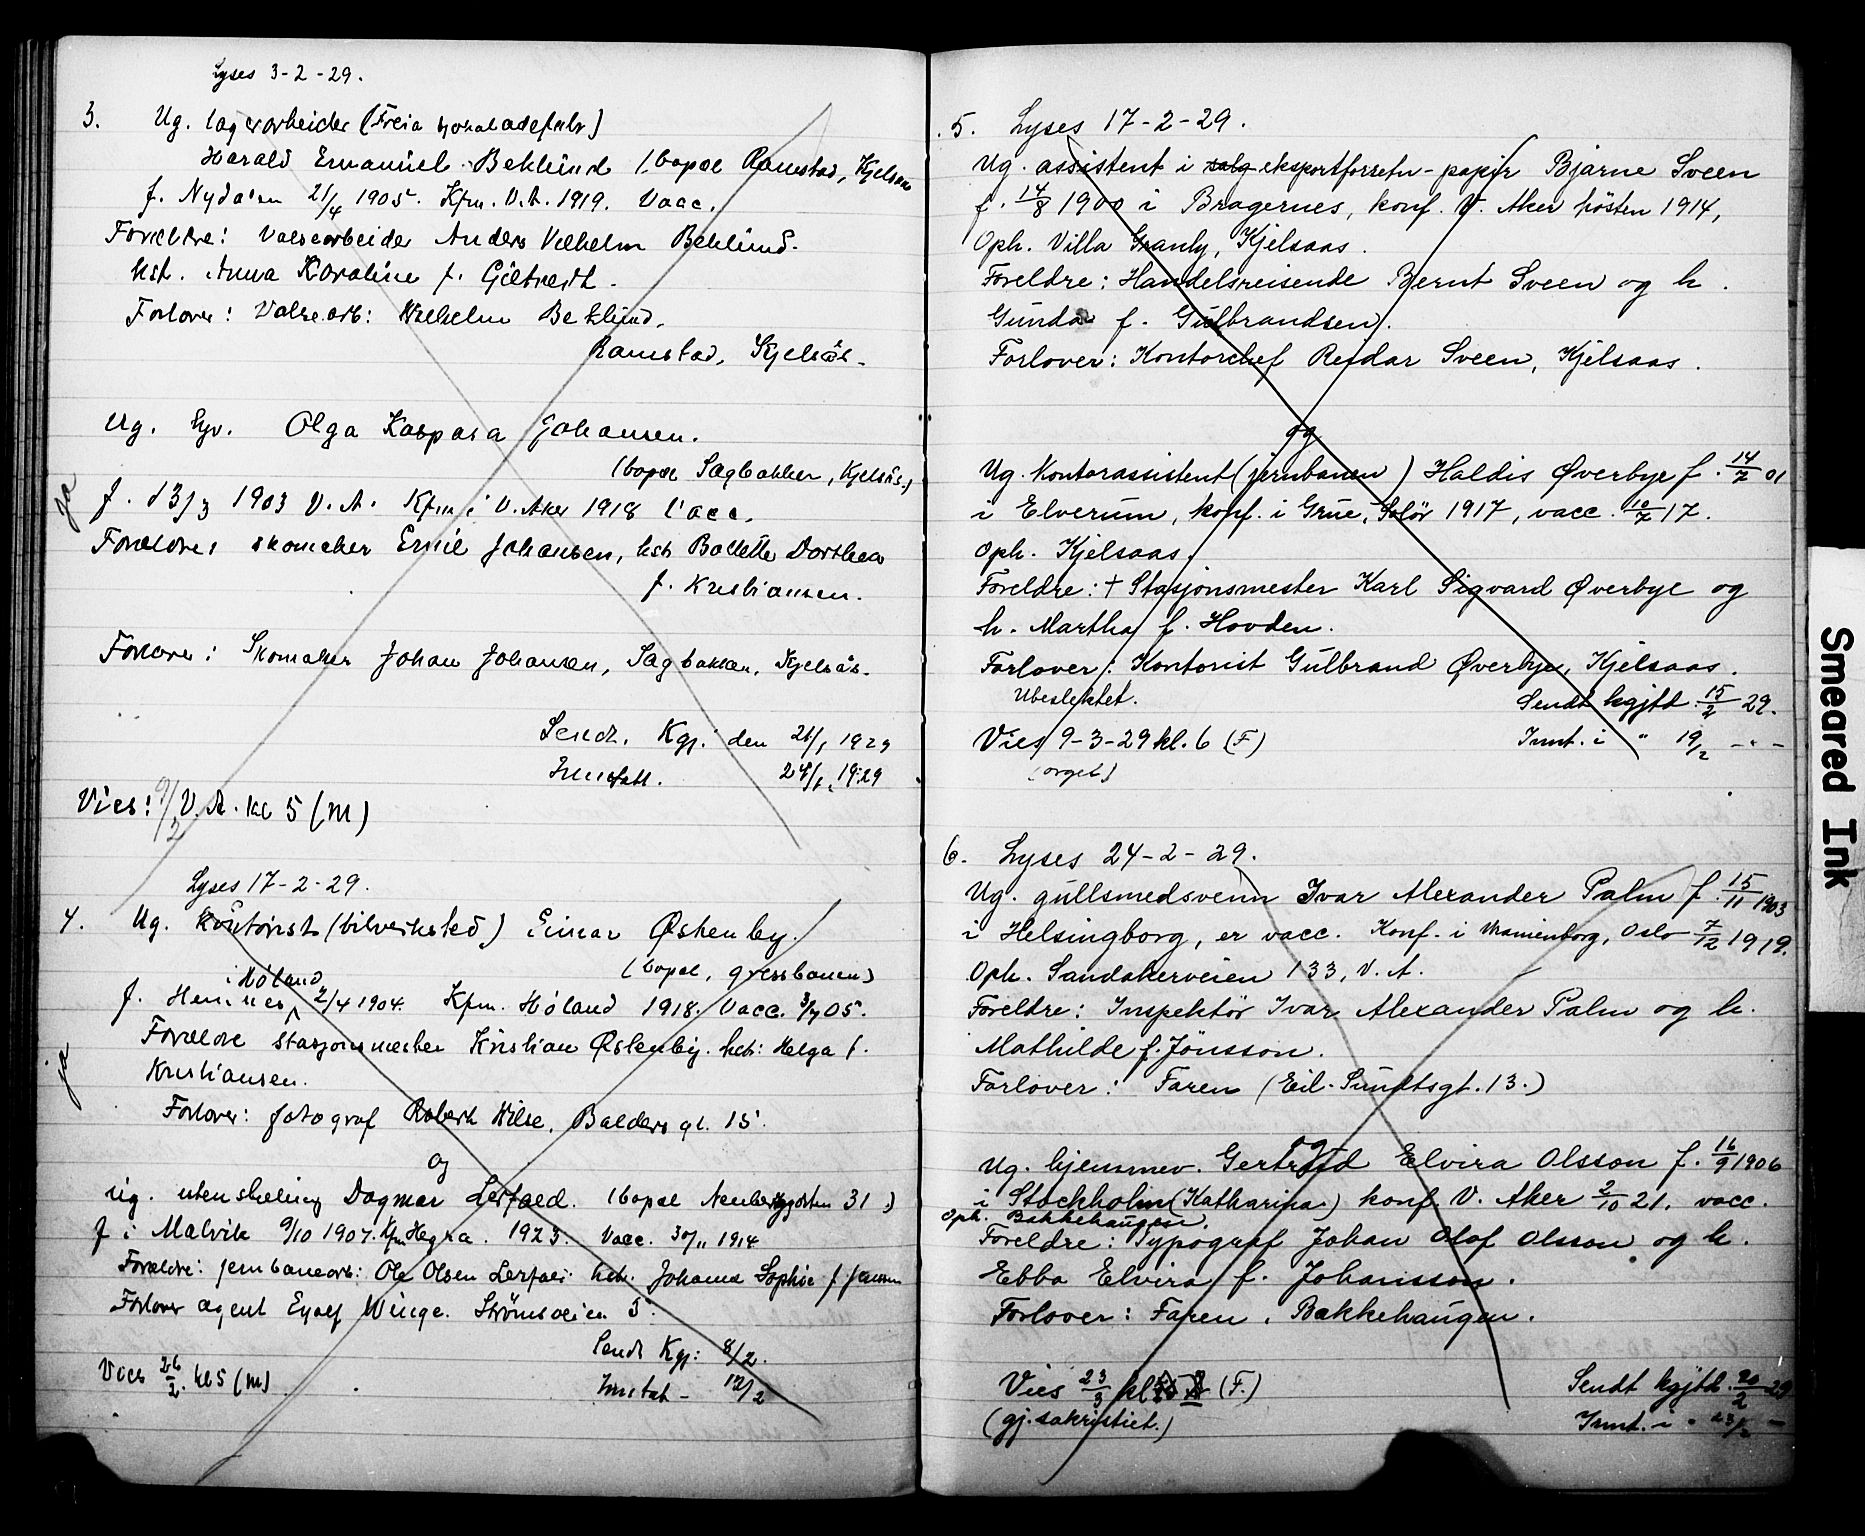 Lyses 3-2-29.
3. Ug. lagerarbeider (Freia sjokoladefabr)
Harald Emanuel Beklund (bopel Ramstad, Kjelsås
f. Nydalen 21/4 1905. Kfm. V.A. 1919. Vacc.
Foreldre: valsearbeider Anders Vilhelm Beklund.
hst. Anna Karoline f.
Forlover: Valsearb: Wilhelm Beklund,
Ramstad, Kjelsås.
Ug. syv. Olga Kaspara Johansen.
(bopel Sagbakken, Kjelsås.)
ja
f. 13/3 1903 V.A. Kfm i V. Aker 1918 Vacc.
Foreldre: skomaker Emil Johansen, hst Bolette Dorthea
f. Kristiansen.
Forlover: Skomaker Johan Johansen, Sagbakken, Kjelsås.
Sendt. Kgj. den 21/1 1929
Innsatt. 24/1 1929
Vies: 9/2 V.A. kl 5 (M)
Lyses 17-2-29.
4. Ug. Kontorist (bilverksted) Einar Østenby.
(bopel, Gressbanen)
i Høland
f. Hemnes 2/4 1904. Kfm. Høland 1918. Vacc. 3/7 05.
Foreldre stasjonsmester Kristian Østenby. hst: Helga f.
ja
Kristiansen.
Forlover: fotograf Robert Wilse, Baldersgt. 15.
og
ug. uten stilling Dagmar Lerfald. (bopel Neuberggaten 31)
f i Malvik 9/10 1907. Kfm Hegra. 1923. Vacc. 30/11 1914
Foreldre: jernbanearb: Ole Olsen Lerfald hst. Johanna Sophie f Jensen
Forlover agent Eyolf Winge. Strømsveien 5.
Sendt Kgj: 8/2.
Innsat - 12/2
Vies 26/2. kl 5 (M)
5. Lyses 17-2-29.
Ug. assistent i salg eksportforretn-papir Bjarne Sveen
f. 14/8 1900 i Bragernes, konf. V. Aker høsten 1914,
Oph. Villa Granly, Kjelsaas.
Foreldre: Handelsreisende Bernt Sveen og h.
Gunda f. Gulbrandsen.
Forlover: Kontorchef Reidar Sveen, Kjelsaas.
og
Ug. kontorassistent (jernbanen) Haldis Øverbye f. 14/7 01
i Elverum, konf. i Grue, Solør 1917, vacc. 10/7 17.
Oph. Kjelsaas.
Foreldre: + Stasjonsmester Karl Sigvard Øverbye og
h. Martha f. Hovden.
Forlover: Kontorist Gulbrand Øverbye, Kjelsaas.
Ubeslektet.
Sendt kgjtd. 15/2 29.
Vies 9-3-29 kl. 6 (F)
Innt. i " 19/2 - " -
(orgel)
6. Lyses 24-2-29.
Ug. gullsmedsvenn Ivar Alexander Palm f. 15/11 1903
i Helsingborg, er vacc. Konf. i Uranienborg, Oslo 7/12 1919.
Oph. Sandakerveien 133, V.A.
Foreldre: Inspektør Ivar Alexander Palm og h.
Mathilde f. Jönsson.
Forlover: Faren (Eil. Sundtsgt. 13.)
og
Ug. hjemmev. Gertrud Elvira Olsson f. 16/9 1906
i Stockholm (Katharina) konf. V. Aker 2/10 21. vacc.
Oph. Bakkehaugen.
Foreldre: Typograf Johan Olof Olsson og h.
Ebba Elvira f. Johansson.
Forlover: Faren, Bakkehaugen.
Vies 23/3 kl. (F.)
Sendt kgjtd. 20/2 29
(gj. sakristiet.)
Innt. i " 23/2 -
Smeared Ink